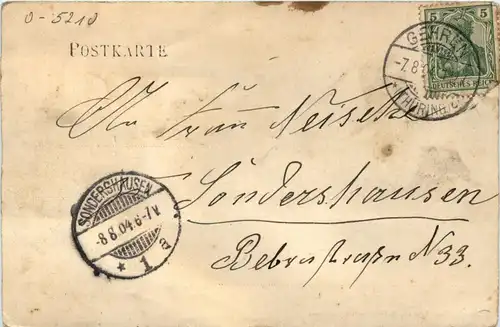 0-5210
POSTKARTE
5 5
DEUTSCHES REICH
GEHREN
-7.8
THÜRING.
An Frau Neise
Sondershausen
Bebrastraße N 33.
SONDERSHAUSEN
-8.8.04.6-7V
* 1 a